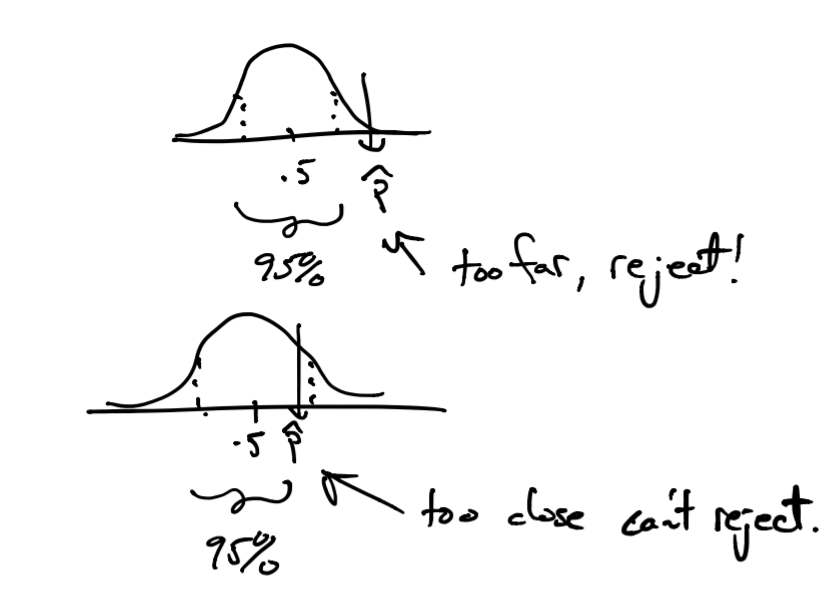 .5
p̂
95%
too far, reject!
.5
p̂
too close can't reject.
95%